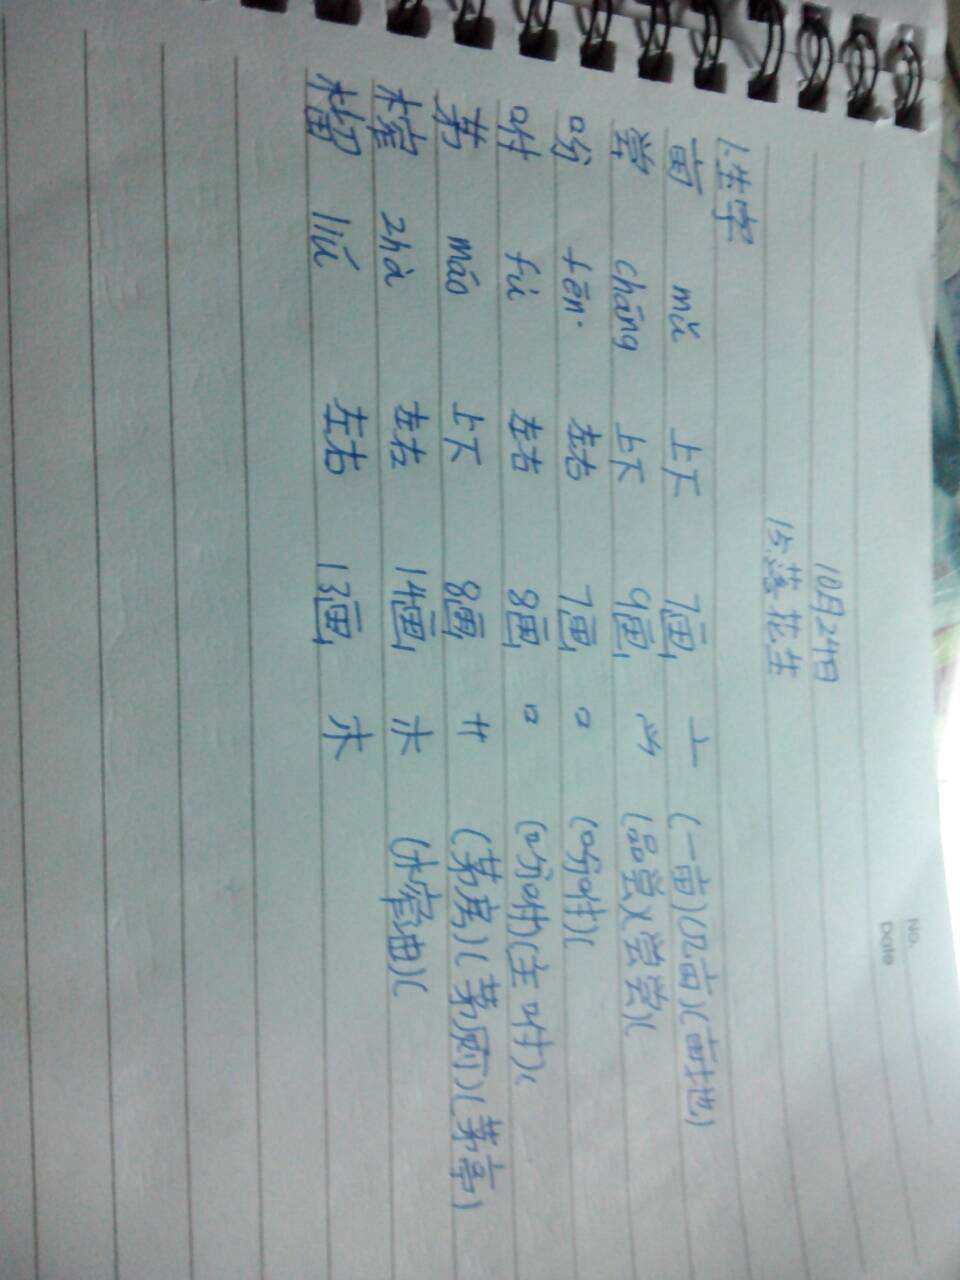 No.
Date
10月24日
15 落花生
1.生字
亩 mǔ 上下 7画 亠 (一亩)(几亩)(亩地)
尝 cháng 上下 9画 ⺌ (品尝)(尝尝)(
吩 fēn 左右 7画 口 (吩咐)(
咐 fú 左右 8画 口 (吩咐)(主咐)(
茅 máo 上下 8画 艹 (茅房)(茅厕)(茅亭)
榨 zhà 左右 14画 木 (榨油)(
榴 liú 左右 13画 木